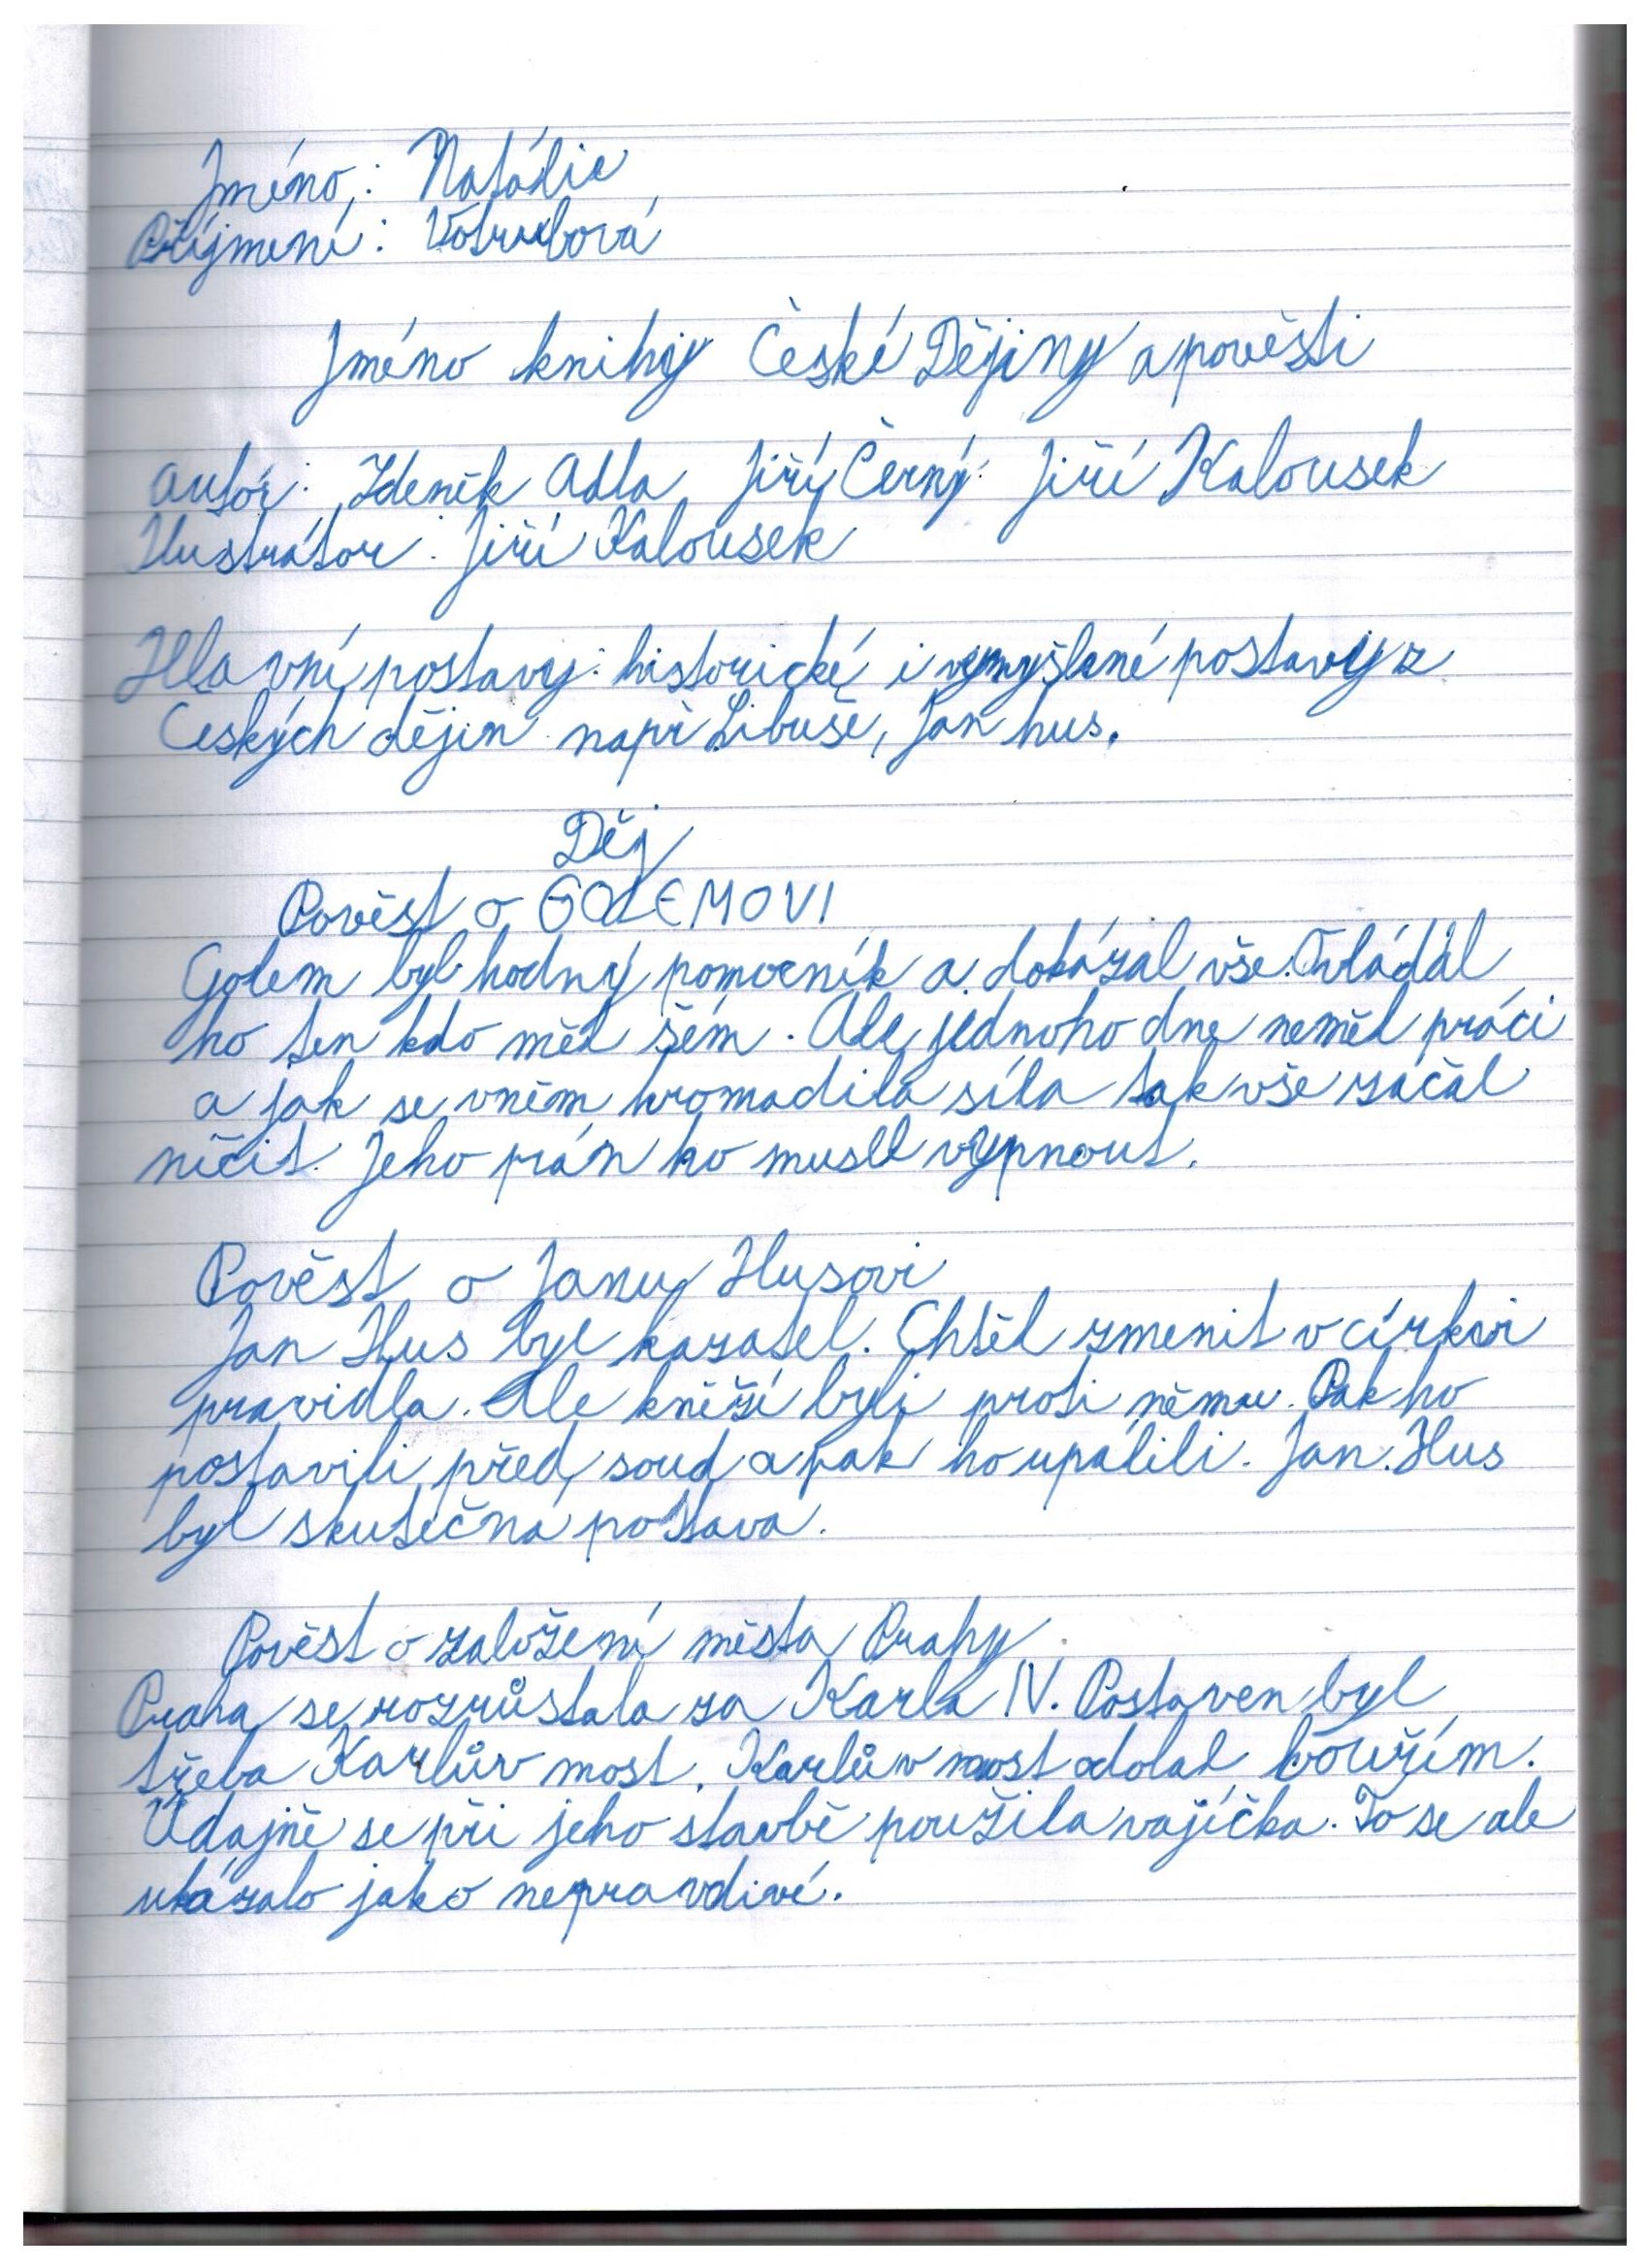 Jméno: Natálie
Příjmení: Votrubová
Jméno knihy České Dějiny a pověsti
autór: Zdeněk Adla, Jiří Černý Jiří Kalousek
Ilustrátor: Jiří Kalousek
Hlavní postavy: historické i vymyšlené postavy z
Českých dějin např Libuše, Jan hus.
Děj
Pověst o GOLEMOVI
Golem byl hodný pomocník a dokázal vše. Ovládál
ho ten kdo měl šém. Ale jednoho dne neměl práci
a jak se vněm hromadila síla tak vše začal
ničit. Jeho pán ho musel vypnout.
Pověst o Janu Husovi
Jan Hus byl kazatel. Chtěl zmenit v církvi
pravidla. Ale kněží byli proti němu. Pak ho
postavili před soud a pak ho upálili. Jan Hus
byl skutečna postava.
Pověst o založení města Prahy
Praha se rozrůstala za Karla IV. Postaven byl
třeba Karlův most. Karlův most odolal bouřím.
Údajně se při jeho stavbě použila vajíčka. To se ale
ukázalo jako nepravdivé.